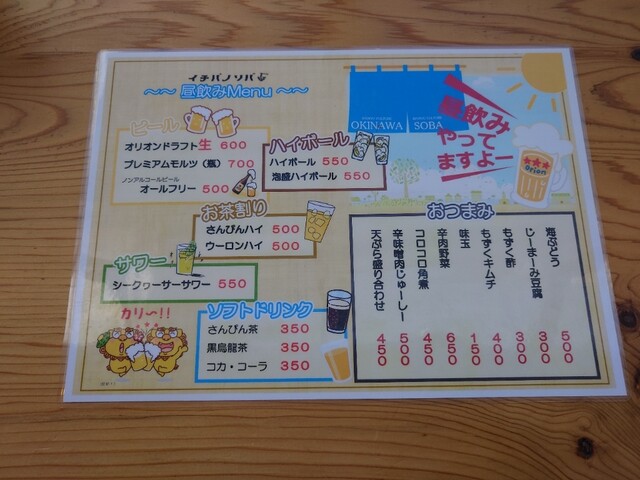 イチバノソバ
～～ 昼飲みMenu ～～
ビール
オリオンドラフト生 600
プレミアムモルツ（瓶）700
ノンアルコールビール
オールフリー 500
ハイボール
ハイボール 550
泡盛ハイボール 550
お茶割り
さんぴんハイ 500
ウーロンハイ 500
サワー
シークヮーサーサワー 550
ソフトドリンク
さんぴん茶 350
黒烏龍茶 350
コカ・コーラ 350
カリ～!!
OKINAWA SOBA
昼飲み
やって
ますよー
Orion
おつまみ
海ぶどう 500
じーまーみ豆腐 300
もずく酢 300
もずくキムチ 400
味玉 150
辛肉野菜 650
コロコロ角煮 450
辛味噌肉じゅーしー 500
天ぷら盛り合わせ 450